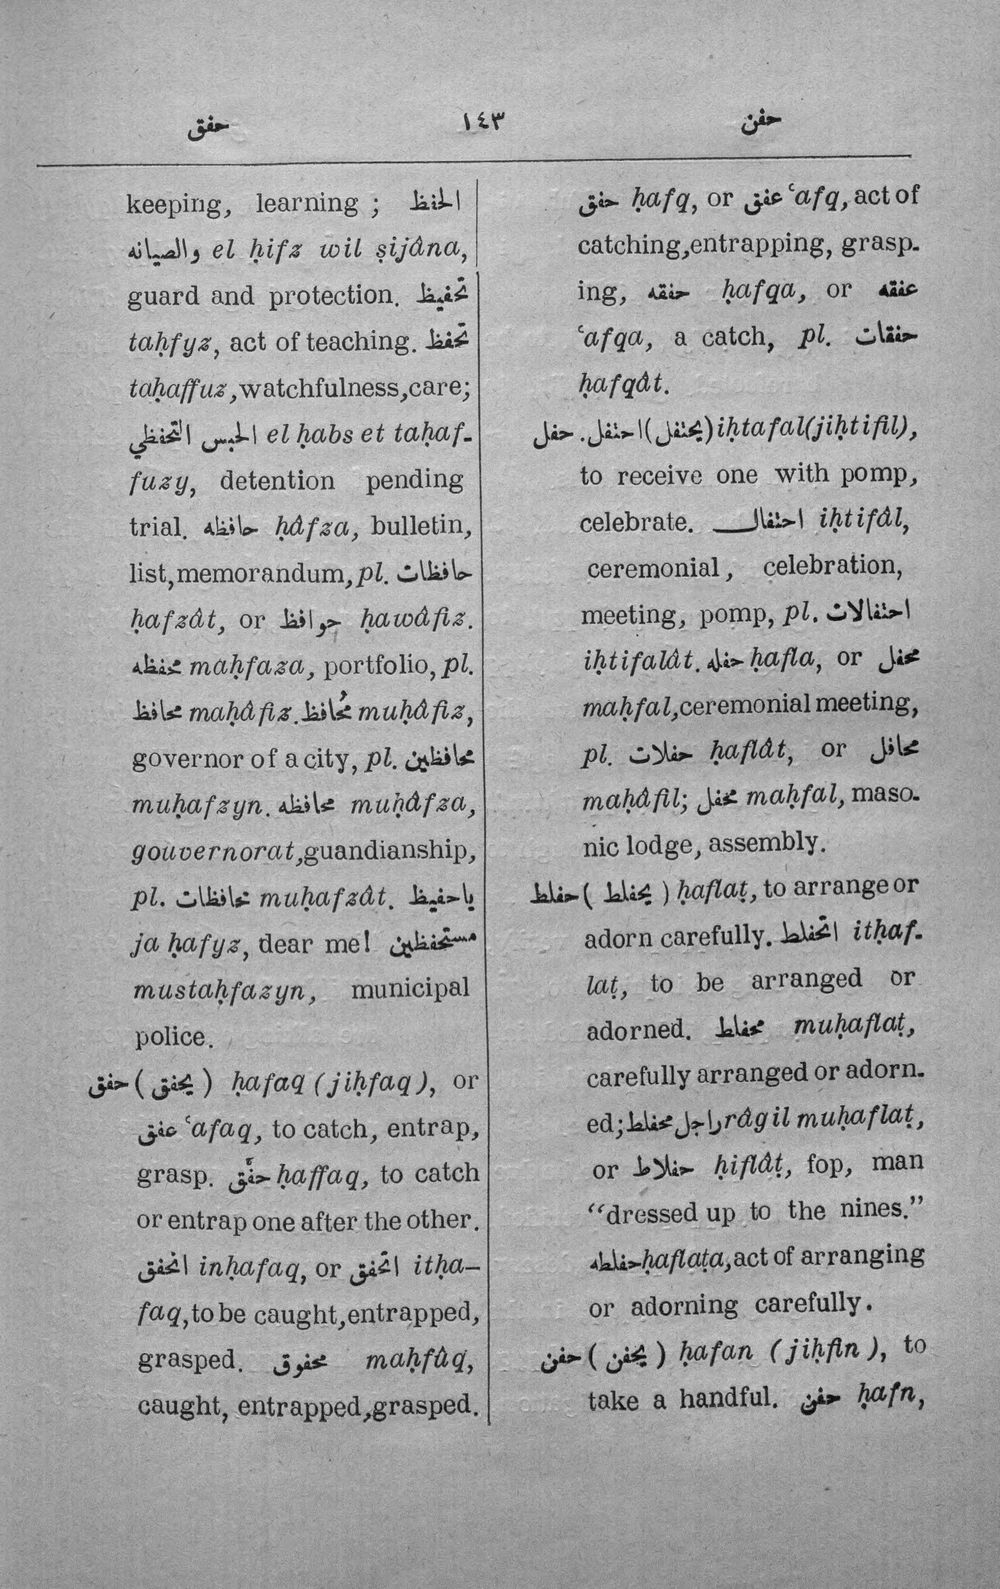 حفق ١٤٣ حفن
keeping, learning ; الحفظ
والصيانه el ḥifz wil ṣijâna,
guard and protection. تحفيظ
taḥfyz, act of teaching. تحفظ
taḥaffuz, watchfulness, care;
الحبس التحفظي el ḥabs et taḥaf-
fuzy, detention pending
trial. حافظه ḥâfza, bulletin,
list, memorandum, pl. حافظات
ḥafzât, or حوافظ ḥawâfiz.
محفظه maḥfaza, portfolio, pl.
محافظ maḥâfiz. مُحافظ muḥâfiz,
governor of a city, pl. محافظين
muḥafzyn. محافظه muḥâfza,
gouvernorat, guandianship,
pl. محافظات muḥafzât. ياحفيظ
ja ḥafyz, dear me! مستحفظين
mustaḥfazyn, municipal
police.
حفق (يحفق) ḥafaq (jiḥfaq), or
عفق ʿafaq, to catch, entrap,
grasp. حفّق ḥaffaq, to catch
or entrap one after the other.
انحفق inḥafaq, or اتحفق itḥa-
faq, to be caught, entrapped,
grasped. محفوق maḥfûq,
caught, entrapped, grasped.
حفق ḥafq, or عفق ʿafq, act of
catching, entrapping, grasp-
ing, حفقه ḥafqa, or عفقه
ʿafqa, a catch, pl. حفقات
ḥafqât.
حفل. احتفل (يحتفل) iḥtafal (jiḥtifil),
to receive one with pomp,
celebrate. احتفال iḥtifâl,
ceremonial, celebration,
meeting, pomp, pl. احتفالات
iḥtifalât. حفله ḥafla, or محفل
maḥfal, ceremonial meeting,
pl. حفلات ḥaflât, or محافل
maḥâfil; محفل maḥfal, maso-
nic lodge, assembly.
حفلط (يحفلط) ḥaflaṭ, to arrange or
adorn carefully. اتحفلط itḥaf-
laṭ, to be arranged or
adorned. محفلط muḥaflaṭ,
carefully arranged or adorn-
ed; راجل محفلط râgil muḥaflaṭ,
or حفلاط ḥiflâṭ, fop, man
“dressed up to the nines.”
حفلطه ḥaflaṭa, act of arranging
or adorning carefully.
حفن (يحفن) ḥafan (jiḥfin), to
take a handful. حفن ḥafn,